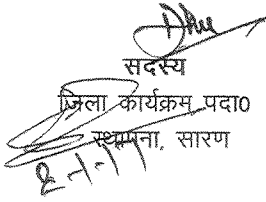 सदस्य
जिला कार्यक्रम पदा0
स्थापना, सारण